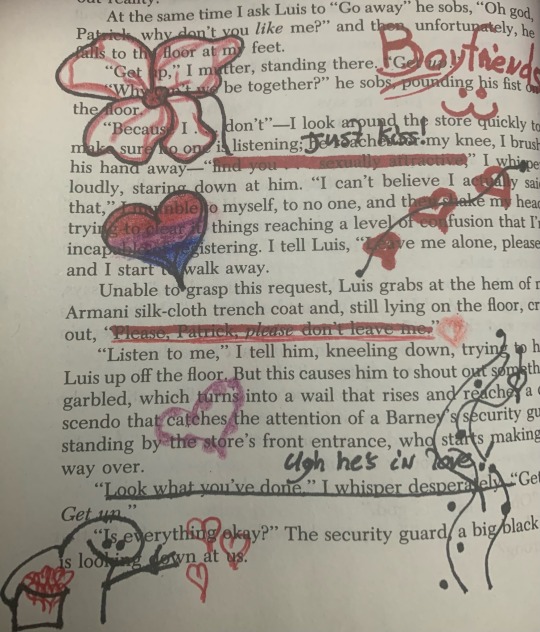 At the same time I ask Luis to "Go away" he sobs, "Oh god,
Patrick, why don't you like me?" and then, unfortunately, he
falls to the floor at my feet.
"Get up," I mutter, standing there. "Get up."
Boyfriends
"Why can't we be together?" he sobs, pounding his fist on
the floor.
"Because I . . . don't"—I look around the store quickly to
Just kiss!
make sure no one is listening; he reaches for my knee, I brush
his hand away—"find you . . . sexually attractive," I whisper
loudly, staring down at him. "I can't believe I actually said
that," I mumble to myself, to no one, and then shake my head,
trying to clear it, things reaching a level of confusion that I'm
incapable of registering. I tell Luis, "Leave me alone, please,
and I start to walk away.
Unable to grasp this request, Luis grabs at the hem of m
Armani silk-cloth trench coat and, still lying on the floor, cr
out, "Please, Patrick, please don't leave me."
"Listen to me," I tell him, kneeling down, trying to h
Luis up off the floor. But this causes him to shout out someth
garbled, which turns into a wail that rises and reaches a c
scendo that catches the attention of a Barney's security gu
standing by the store's front entrance, who starts making
way over.
Ugh he's in love
"Look what you've done," I whisper desperately. "Get
Get up."
"Is everything okay?" The security guard, a big black
is looking down at us.